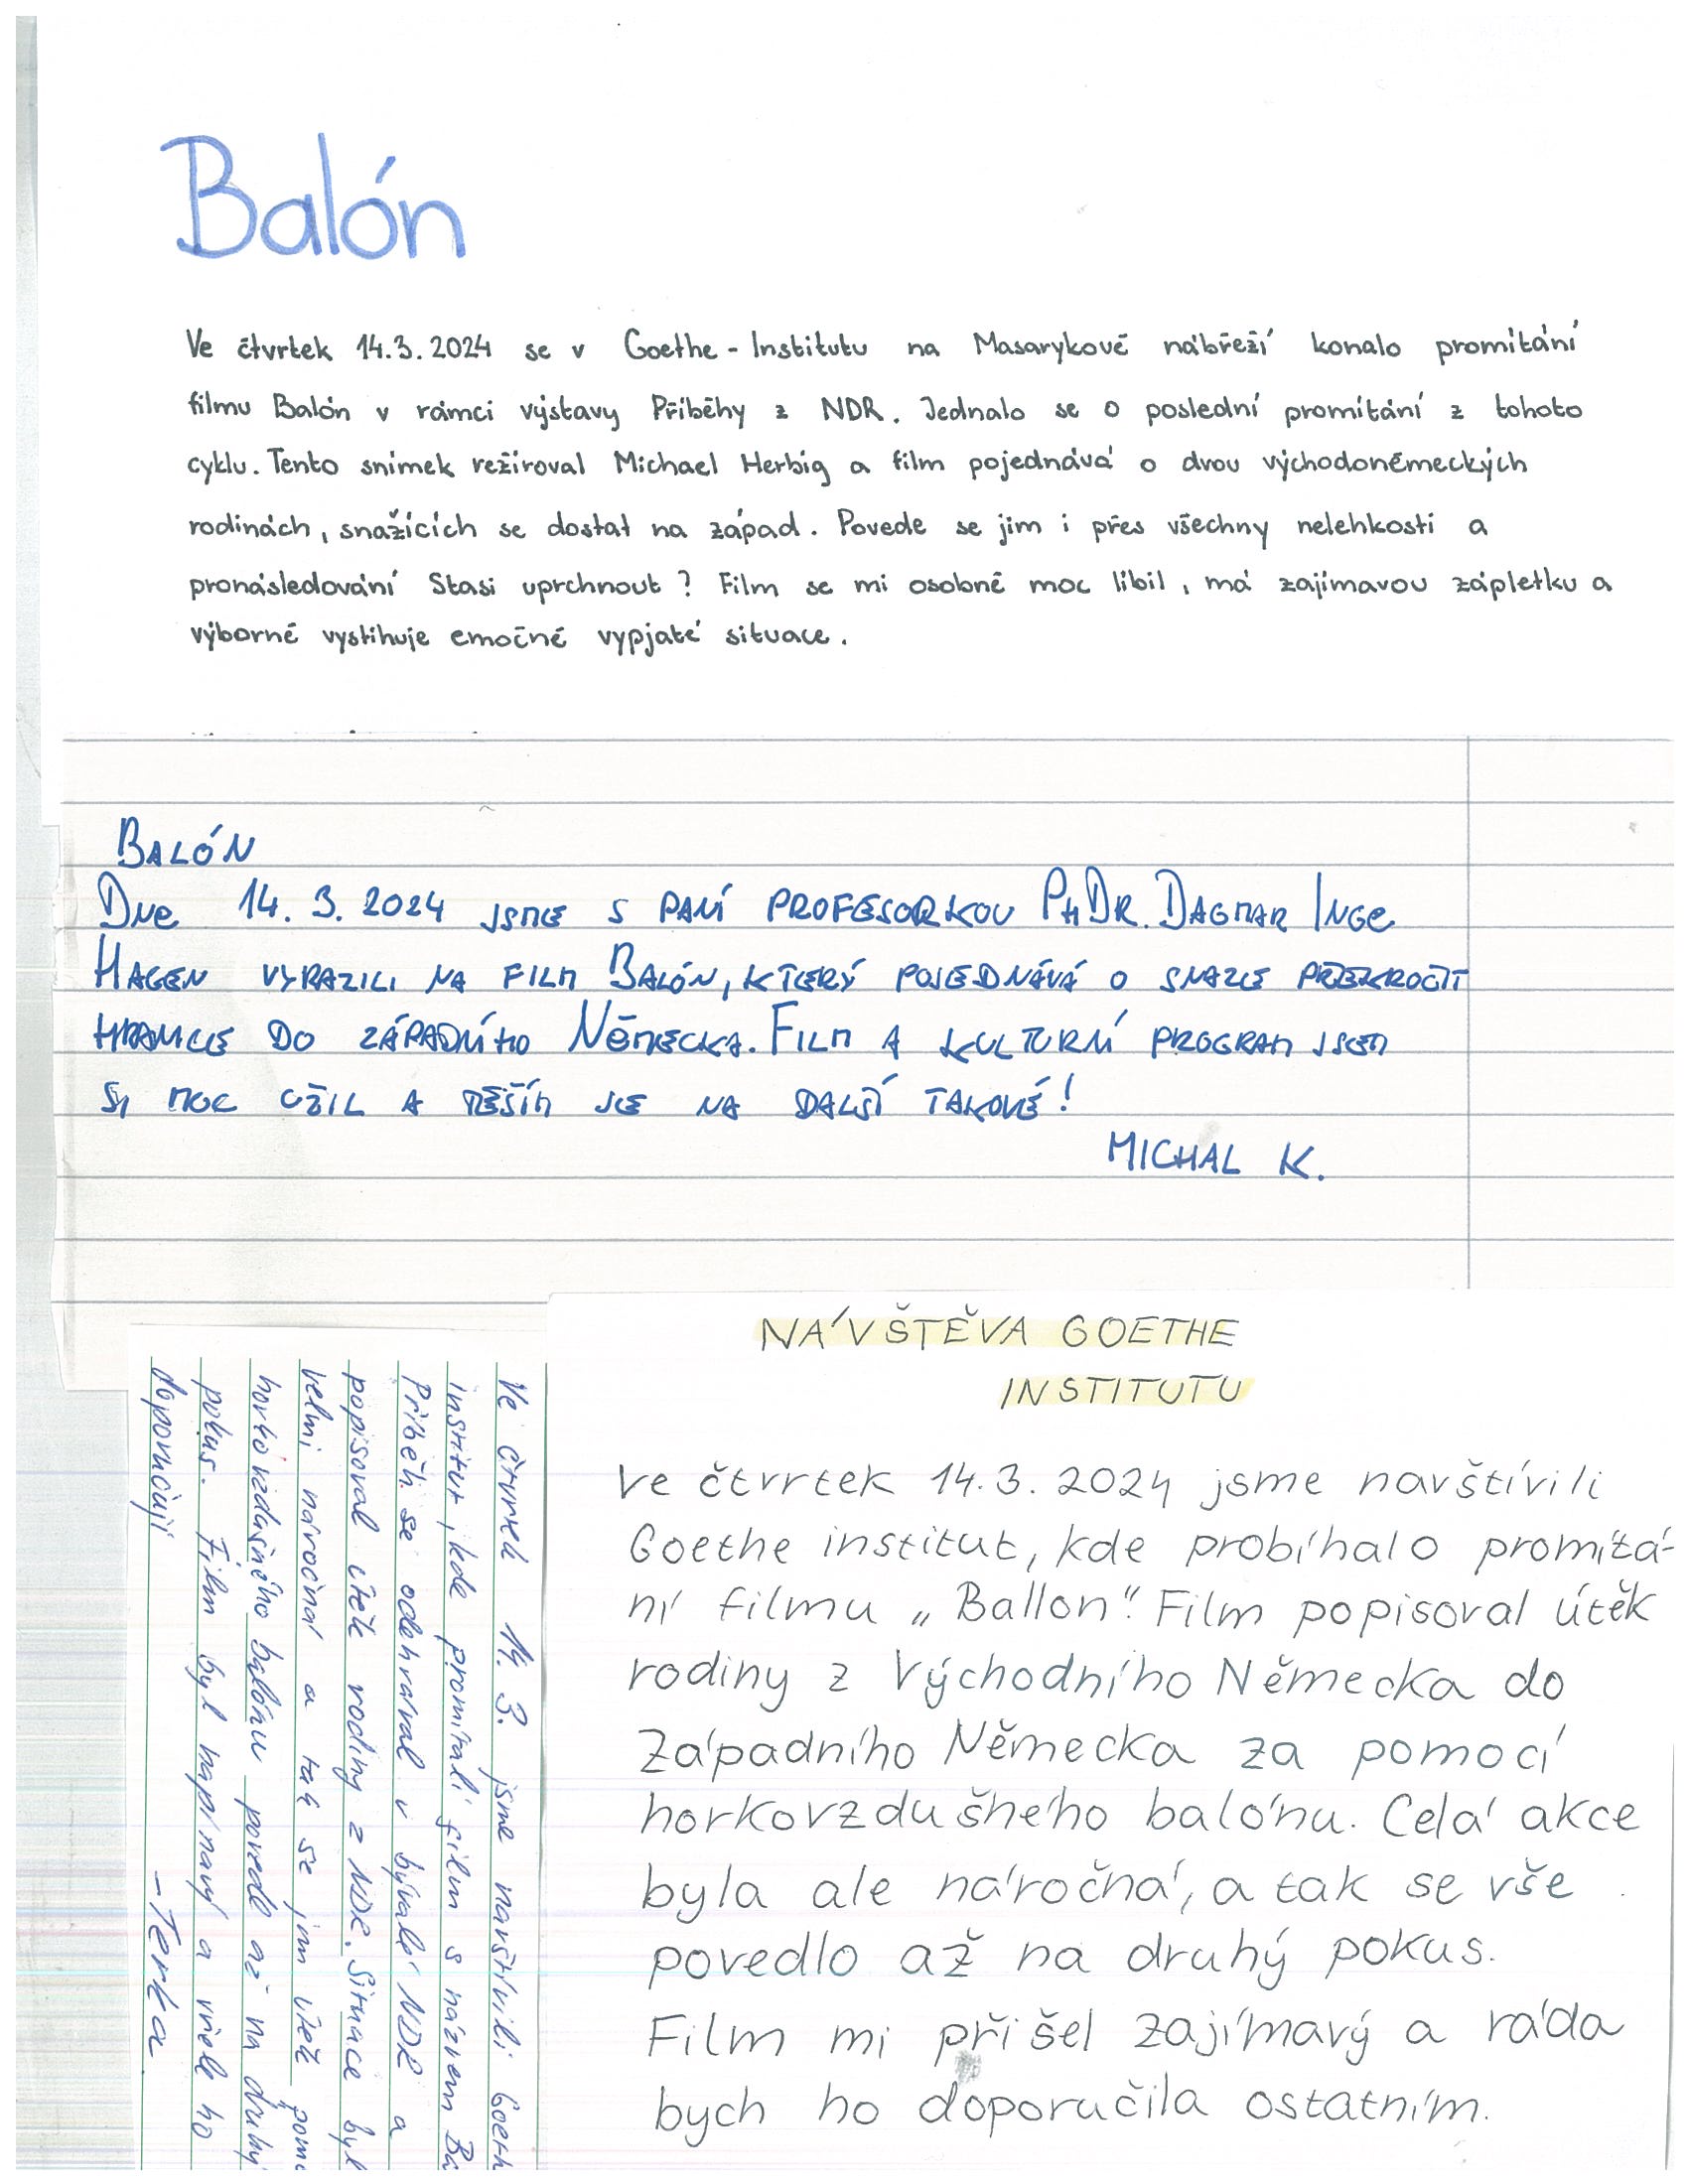 Balón
Ve čtvrtek 14.3.2024 se v Goethe-Institutu na Masarykově nábřeží konalo promítání
filmu Balón v rámci výstavy Příběhy z NDR. Jednalo se o poslední promítání z tohoto
cyklu. Tento snímek režíroval Michael Herbig a film pojednává o dvou východoněmeckých
rodinách, snažících se dostat na západ. Povede se jim i přes všechny nelehkosti a
pronásledování Stasi uprchnout? Film se mi osobně moc líbil, má zajímavou zápletku a
výborně vystihuje emočně vypjaté situace.
BALÓN
DNE 14. 3. 2024 JSME S PANÍ PROFESORKOU PHDR. DAGMAR INGE
HAGEN VYRAZILI NA FILM BALÓN, KTERÝ POJEDNÁVÁ O SNAZE PŘEKROČIT
HRANICE DO ZÁPADNÍHO NĚMECKA. FILM A KULTURNÍ PROGRAM JSEM
SI MOC UŽIL A TĚŠÍM SE NA DALŠÍ TAKOVÉ!
MICHAL K.
Ve čtvrtek 14. 3. jsme navštívili Goeth
institut, kde promítali film s názvem Ba
Příběh se odehrával v bývalé NDR a
popisoval útěk rodiny z NDR. Situace byl
velmi náročná a tak se jim útěk pomo
horkovzdušného balónu povedl až na druhý
pokus. Film byl napínavý a vřele ho
doporučuji
- Terka
NÁVŠTĚVA GOETHE
INSTITUTU
Ve čtvrtek 14.3.2024 jsme navštívili
Goethe institut, kde probíhalo promítá-
ní filmu „Ballon". Film popisoval útěk
rodiny z Východního Německa do
Západního Německa za pomocí
horkovzdušného balónu. Celá akce
byla ale náročná, a tak se vše
povedlo až na druhý pokus.
Film mi přišel zajímavý a ráda
bych ho doporučila ostatním.